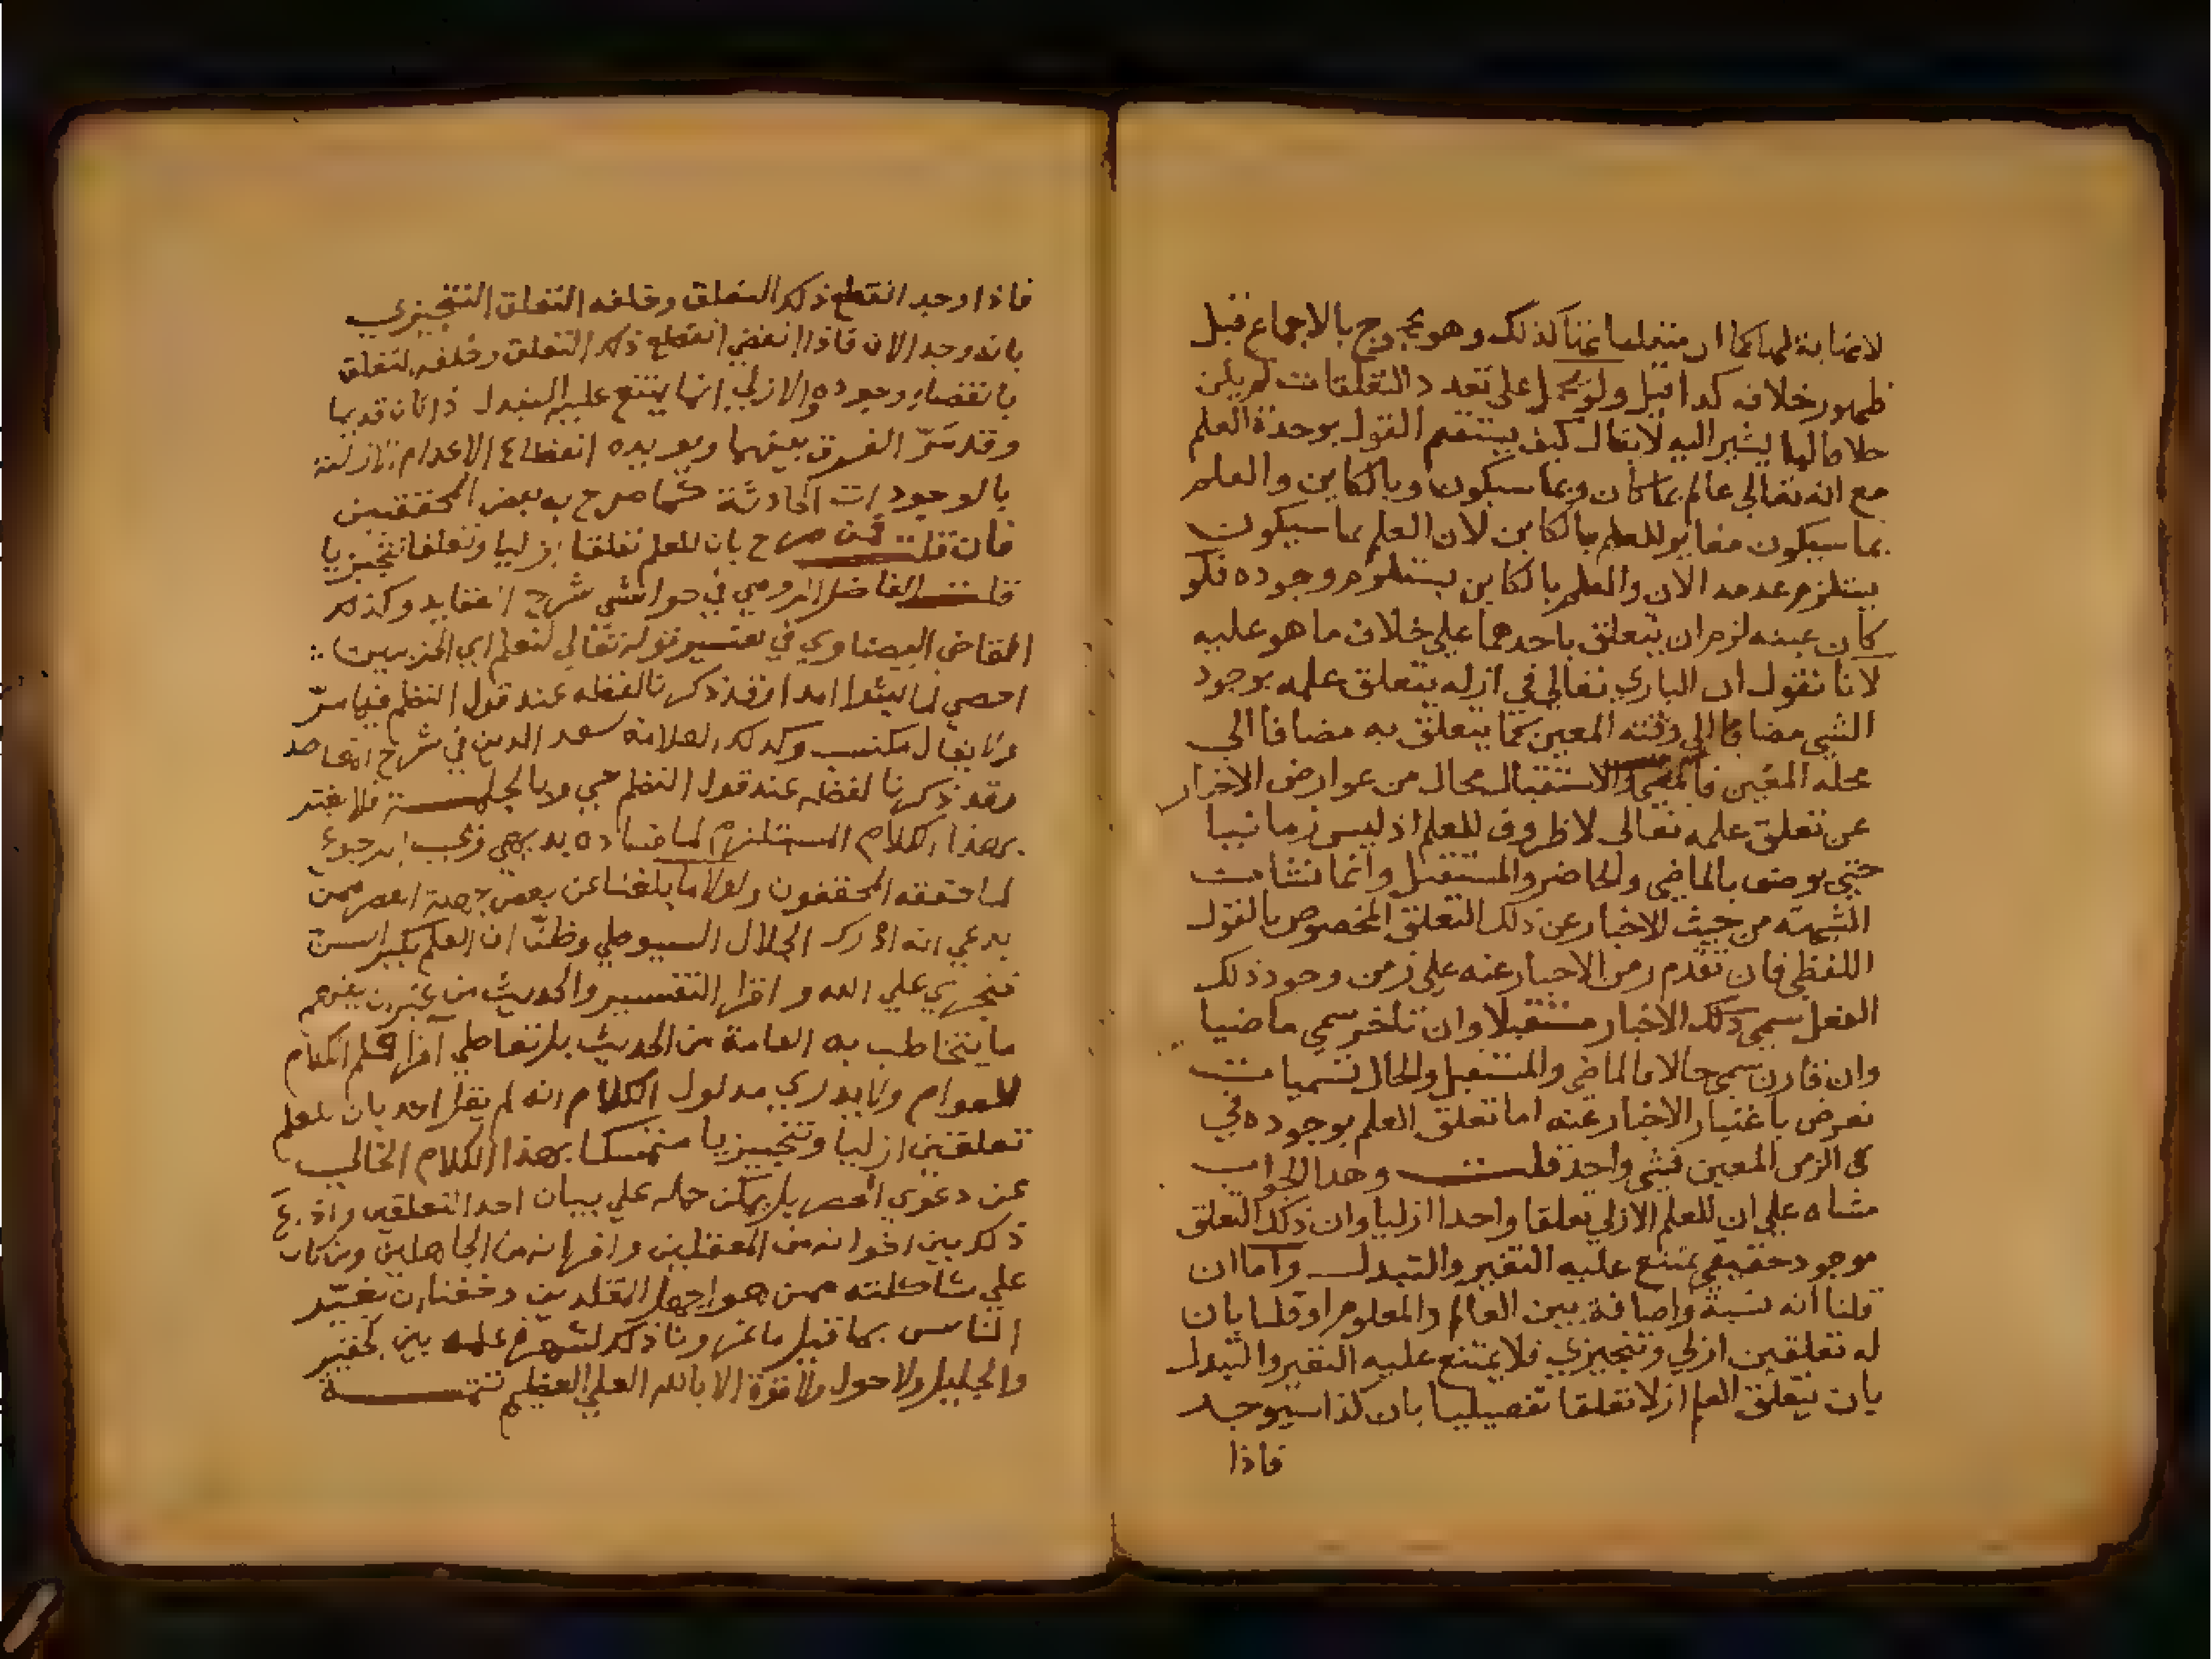 لانهاية لها كما ان متعلقا تنا كذلك وهو محجوج بالاجماع قبل
ظهور خلافه كدا قيل ولو حمل على تعدد التعلقات لم يكن
خلافا لها يشير اليه لايقال كيف يستقم القول بوحدة العلم
مع انه تعالى عالم بما كان وبما سيكون وبالكاين والعلم
بما سيكون مغاير للعلم بالكاين لان العلم بما سيكون
يستلزم عدمه الان والعلم بالكاين يستلزم وجوده فلو
كان عينه لزم ان يتعلق باحدهما علي خلاف ما هو عليه
لانا نقول ان الباري تعالي في ازله يتعلق علمه بوجود
الشي مضافا الي وقته المعين كما يتعلق به مضافا الي
محله المعين فالمضي والاستقبال محال من عوارض الاخبار
عن تعلق علمه تعالى لاظروف للعلم اذ ليس زمانيا
حتي يوصف بالماضي والحاضر والمستقبل وانما نشات
الشبهته من حيث الاخبار عن ذلك التعلق المخصوص بالقول
اللفظي فان تقدم زمن الاخبار عنه علي زمن وجود ذلك
الفعل سمي ذلك الاخبار مستقبلا وان تاخر سمي ماضيا
وان قارن سمي حالا فالماضي والمستقبل والحال تسميات
تعرض باعتبار الاخبار عنه اما تعلق العلم بوجوده في
الزمن المعين فشي واحد قلت وهدا الجواب
مشاه علي ان للعلم الازلي تعلقا واحدا ازليا وان ذلك التعلق
موجود حقيقي يمتنع عليه التغير والتبدل واما ان
قلنا انه نسبة واضافة بين العالم والمعلوم او قلنا بان
له تعلقين ازلي وتنجيزي فلا يمتنع عليه التغير والتبدل
بان يتعلق العلم ازلا تعلقا تفصيليا بان كذا سيوجد
فاذا
فاذا وجد انقطع ذلك التعلق وخلفه التعلق التنجيزي
بانه وجد الان فاذا انقضى انقطع ذلك التعلق وخلفه التعلق
بانقضاء وجوده والازلي انما يمتنع عليه التبدل اذا كان قديما
وقد مَرّ الفرق بينهما ويويده انقطاع الاعدام الازلية
بالوجودات الحادثة كما صرح به بعض المحققين
فان قلت فمن صرح بان للعلم تعلقا ازليا وتعلقا تنجيزيا
قلت الفاضل الرومي في حواشي شرح العقايد وكذلك
القاضى البيضاوي في تفسير قوله تعالي لنعلم اي الحزبين
احصي لما لبثوا امدا وقد ذكرنا لفظه عند قول النظم فيما مرّ
ولا يقال مكتسب وكذلك العلامة سعد الدين في شرح المقاصد
وقد ذكرنا لفظه عند قول النظم حي وبالجملة فلا يغتر
بهذا الكلام المستلزم لما ضاده بديهي ويجب الرجوع
لما حققه المحققون ولولا ما بلغنا عن بعض جهلة العصر ممن
يدعي انه ادرك الجلال السيوطي وظنّ ان العلم بكبر السن
فتجري علي الله واقرا التفسير والحديث من غير ان يفهم
ما يتخاطب به العامة من الحديث بل تعاطي اقرا علم الكلام
للعوام ولا يدري مدلول الكلام انه لم يقل احد بان للعلم
تعلقين ازليا وتنجيزيا متمسكا بهذا الكلام الخالي
عن دعوي الحصر بل يمكن حمله علي بيان احد التعلقين واذاع
ذلك بين اخوانه من المغفلين واقرانه من الجاهلين ومن كان
علي شاكلته ممن هو اجهل المقلدين وخفنا ان تغيّر
الناس بما قيل ما عن ونا ذكر لشهرة علمه بين الحقير
والجليل ولا حول ولا قوة الا بالله العلي العظيم تتمة